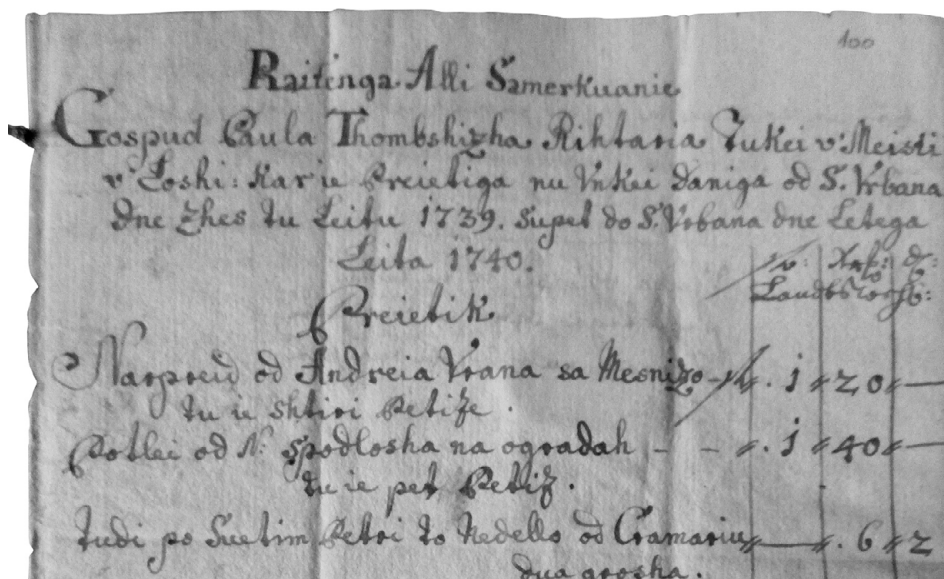 100
Raitinga Alli Samerkuanie
Gospud Paula Thombshizha Rihtaria Tukei v: Meisti
v' Loski: kar ie Preietiga nu Vnkei daniga od S. Vrbana
dne zhes tu Leitu 1739. supet do S. Vrbana dne Letega
Leita 1740.
Preietik
Narpreid od Andreia Vrana sa Mesnizo — 1 20 —
tu ie shtiri Petize.
Potlei od N: Spodlosha na ogradah - - 1 40 —
tu ie pet Petiz.
tudi po Suetim Petri to Nedello od Cramariu — 6 2
dua grosha.